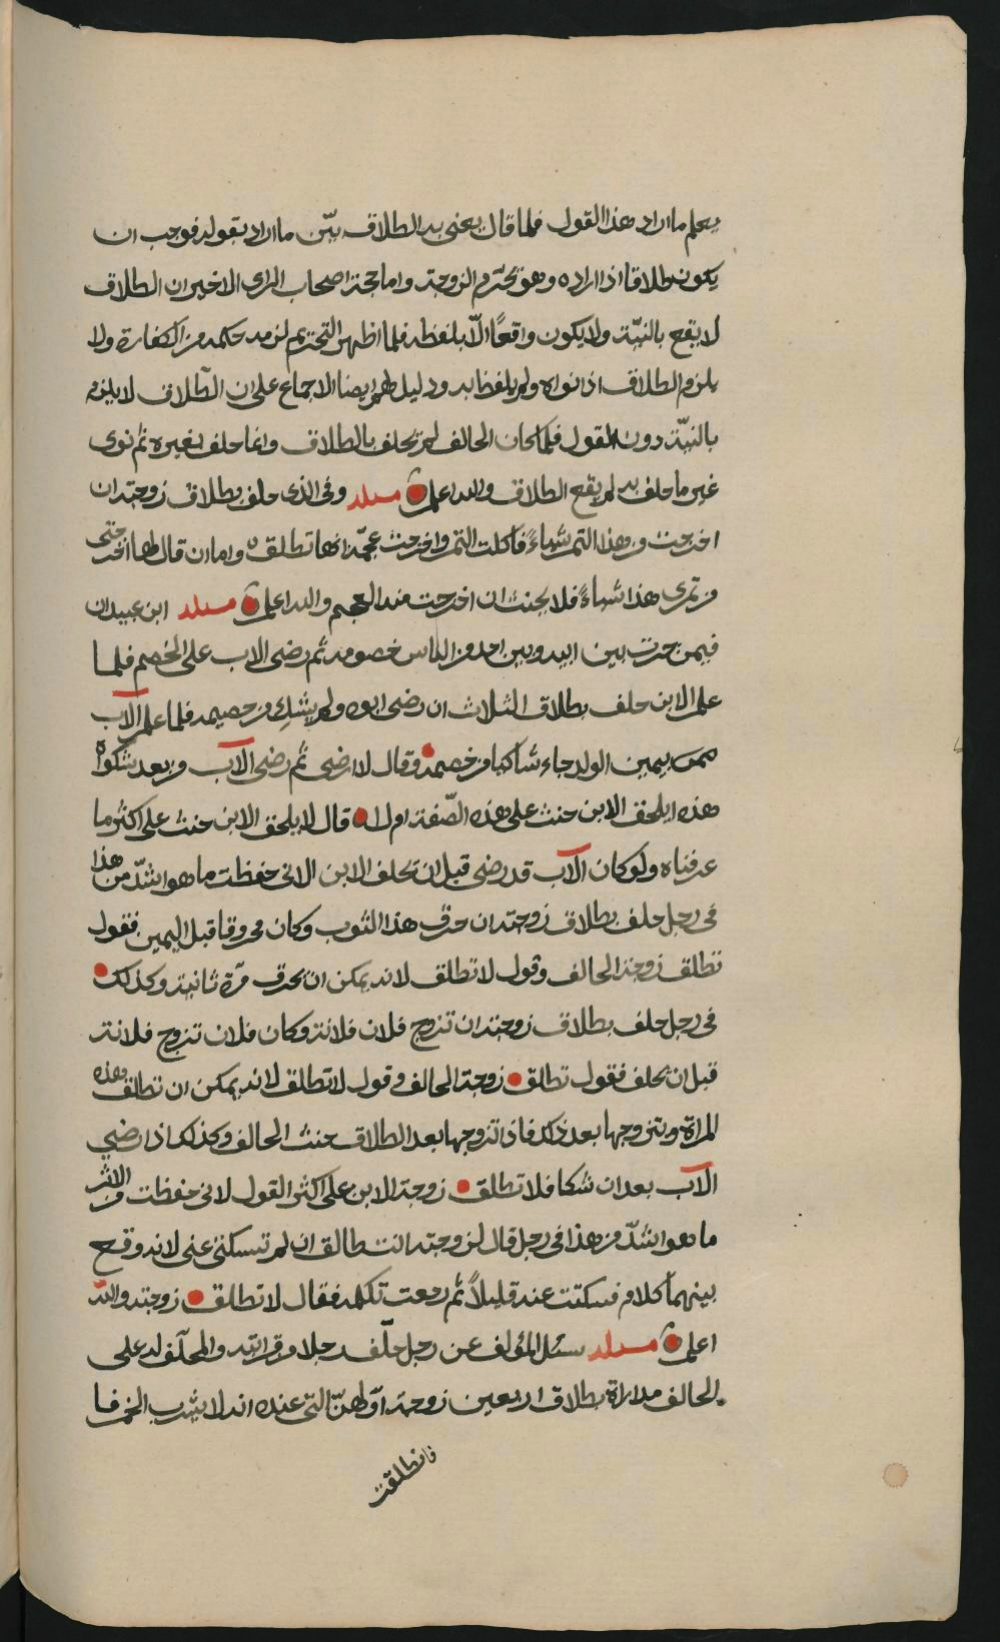 يعلم ما اراد هذا القول فلما قال يعني به الطلاق بيّن ما اراد بقوله فوجب ان
يكون طلاقا اذا اراده وهو تحترم الزوجة واما حجة اصحاب الراي الاخير ان الطلاق
لا يقع بالنيّة ولا يكون واقعًا الّا بلفظه فلما اظهر التحريم لزمه حكمه من الكفارة ولا
يلزم الطلاق اذا نواه ولم يلفظ به ودليل لهم ايضا الاجماع على ان الطّلاق لا يلزم
بالنيّة دون القول فلما كان الحالف لم يحلف بالطلاق وانما حلف بغيره ثم نوى
غير ما حلف به لم يقع الطلاق والله اعلم مسئلة وفي الذي حلف بطلاق زوجته ان
اخرجت من هذا التمر شيئاءً فاكلت التمر واخرجت عجمّه انها تطلق واما ان قال لها ان اخرجتي
من تمري هذا شيئاءً فلا يحنث ان اخرجت منه العجم والله اعلم مسئلة ابن عبيدان
فيمن جرت بين ابيه وبين احد من الناس خصومة ثم رضى الاب على الخصم فلما
علم الابن حلف بطلاق الثلاث ان رضى ابوه ولم يشك من خصيمه فلما علم الآب
بيمين الولد جاء شاكيا من خصمه وقال لا ارضى ثم رضى الآب من بعد شكواه
هذه ايلحق الابن حنث على هذه الصّفة ام لا قال لا يلحق الابن حنث على اكثر ما
عرفناه ولو كان الآب قد رضى قبل ان يحلف الابن الاني حفظت ما هو اشدّ من هذا
في رجل حلف بطلاق زوجته ان حرق هذا الثوب وكان محروقا قبل اليمين فقول
تطلق زوجة الحالف وقول لا تطلق لانه يمكن ان يحرق مرّة ثانية وكذلك
في رجل حلف بطلاق زوجته ان تزوج فلان فلانة وكان فلان تزوج فلانة
قبل ان يحلف فقول تطلق زوجة الحالف وقول لا تطلق لانه يمكن ان تطلق هذه
المراة ويتزوجها بعد ذلك فاذا تزوجها بعد الطلاق حنث الحالف وكذلك اذا رضي
الآب بعد ان شكا فلا تطلق زوجة الابن على اكثر القول لاني حفظت من الاثر
ما هو اشدّ من هذا في رجل قال لزوجته انت طالق ان لم تسكتي عني لانه وقع
بينهما كلام فسكتت عنه قليلاً ثم رجعت تكلمه فقال لا تطلق زوجته والله
اعلم مسئلة سئل المؤلف عن رجل حلّف رجلا من قرابته والمحلّف له على
الحالف مداراة بطلاق اربعين زوجة اوّلهنّ التي عنده انه لا يشرب الخمر فما
فانطلقت